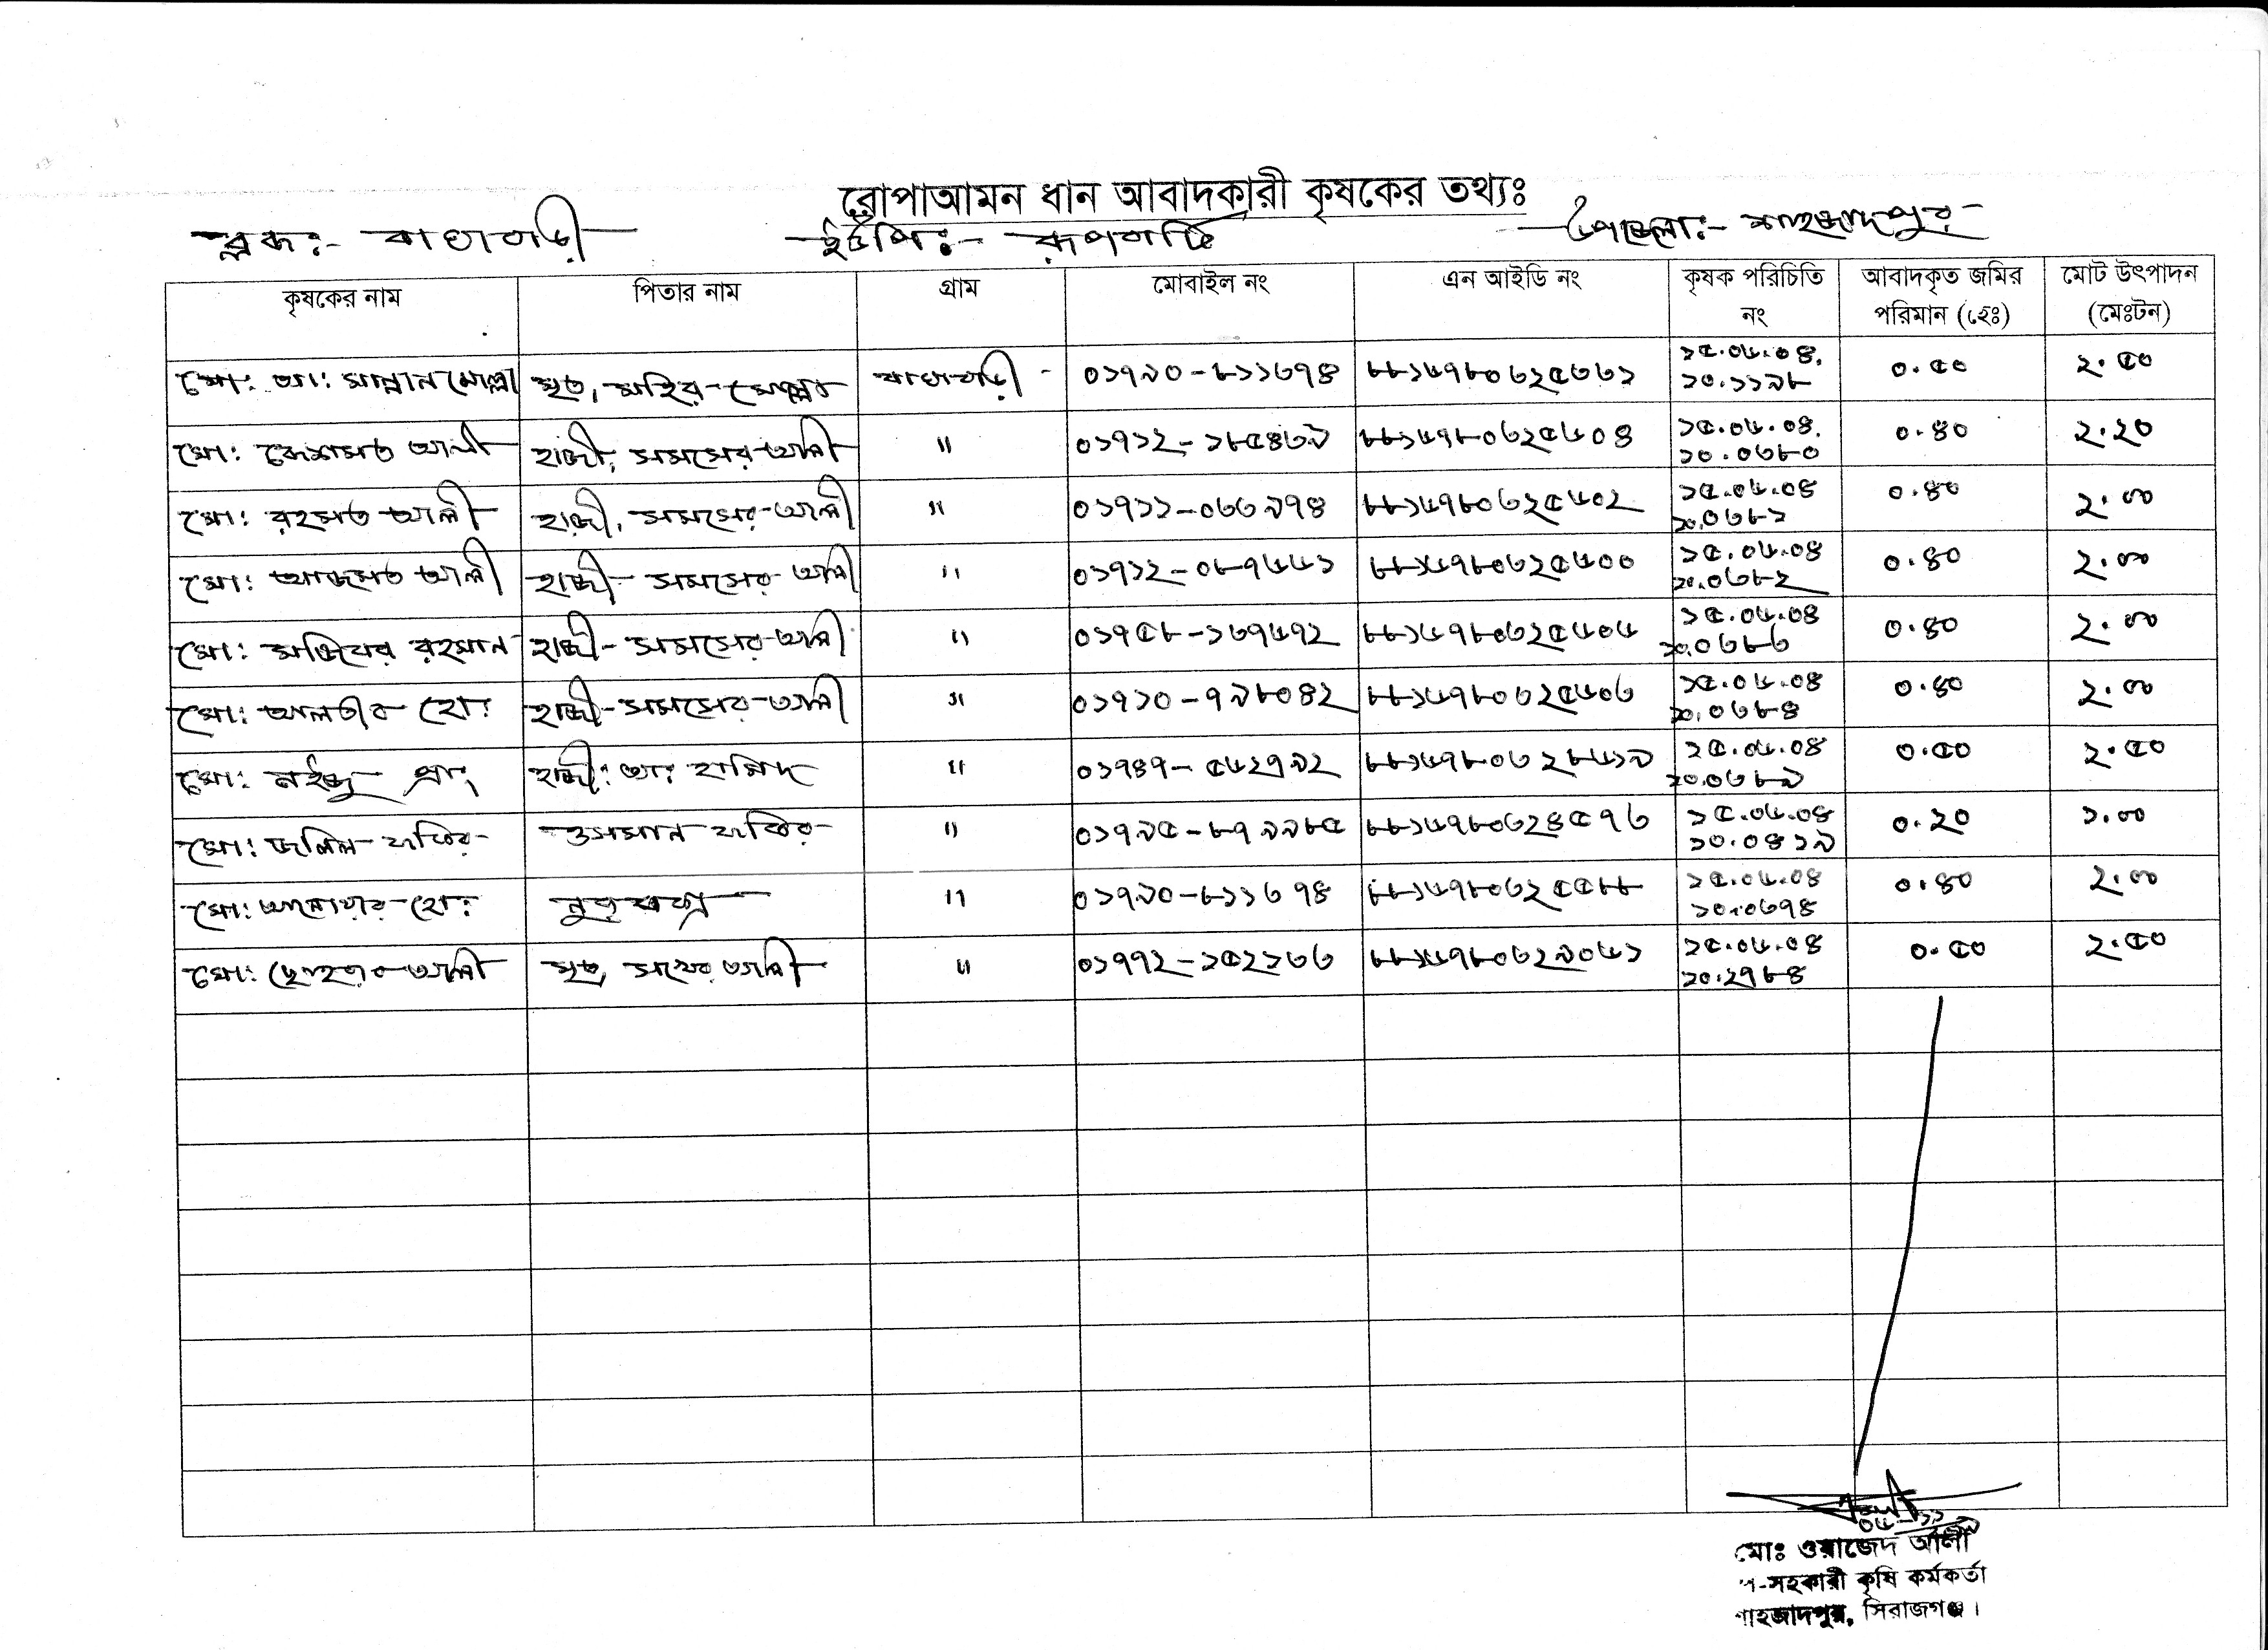 রোপাআমন ধান আবাদকারী কৃষকের তথ্যঃ
ব্লকঃ- বাঘাবাড়ী ইউপিঃ- রূপবাটি উপজেলাঃ- শাহজাদপুর
কৃষকের নাম পিতার নাম গ্রাম মোবাইল নং এন আইডি নং কৃষক পরিচিতি নং আবাদকৃত জমির পরিমান (হেঃ) মোট উৎপাদন (মেঃটন)
মো: আ: মান্নান মোল্লা মৃত, মহির মোল্লা বাঘাবাড়ী ০১৭৯০-৮১১৩৭৪ ৮৮১৬৭৮০৩২৫৩৩১ ১৫.০৬.০৪. ১০.১১৯৮ ০.৫০ ২.৫০
মো: কেশমত আলী হাজী, সমসের আলী " ০১৭১২-১৮৫৪৩৯ ৮৮১৬৭৮০৩২৫৬০৪ ১৫.০৬.০৪. ১০.০৩৮০ ০.৪০ ২.২০
মো: রহমত আলী হাজী, সমসের আলী " ০১৭১১-০৩৩৯৭৪ ৮৮১৬৭৮০৩২৫৬০২ ১৫.০৬.০৪ ১০.০৩৮১ ০.৪০ ২.০০
মো: আজমত আলী হাজী- সমসের আলী " ০১৭১২-০৮৭৬৬১ ৮৮১৬৭৮০৩২৫৬০০ ১৫.০৬.০৪ ১০.০৩৮২ ০.৪০ ২.০০
মো: মজিবর রহমান হাজী- সমসের আলী " ০১৭৫৮-১৩৭৬৭২ ৮৮১৬৭৮০৩২৫৬০৬ ১৫.০৬.০৪ ১০.০৩৮৩ ০.৪০ ২.০০
মো: আলতাব হো: হাজী- সমসের আলী " ০১৭১০-৭৯৮০৪২ ৮৮১৬৭৮০৩২৫৬০৩ ১৫.০৬.০৪ ১০.০৩৮৪ ০.৪০ ২.০০
মো: নইজু প্রাং হাজী: আ: হামিদ " ০১৭৪৭-৫৬২৭৯২ ৮৮১৬৭৮০৩২৮৬১৯ ১৫.০৬.০৪ ১০.০৩৮৯ ০.৫০ ২.৫০
মো: জলিল ফকির ওসমান ফকির " ০১৭৯৫-৮৭৯৯৮৫ ৮৮১৬৭৮০৩২৪৫৭৩ ১৫.০৬.০৪ ১০.০৪১৯ ০.২০ ১.০০
মো: আনোয়ার হো: " ০১৭৯০-৮১১৩৭৪ ৮৮১৬৭৮০৩২৫৫৮৮ ১৫.০৬.০৪ ১০.০৩৭৪ ০.৪০ ২.০০
মো: আলী মৃত, আলী " ০১৭৭২-১৫২১৩৩ ৮৮১৬৭৮০৩২৯০৬১ ১৫.০৬.০৪ ১০.২৭৮৪ ০.৫০ ২.৫০
মোঃ ওয়াজেদ আলী
-সহকারী কৃষি কর্মকর্তা
শাহজাদপুর, সিরাজগঞ্জ।